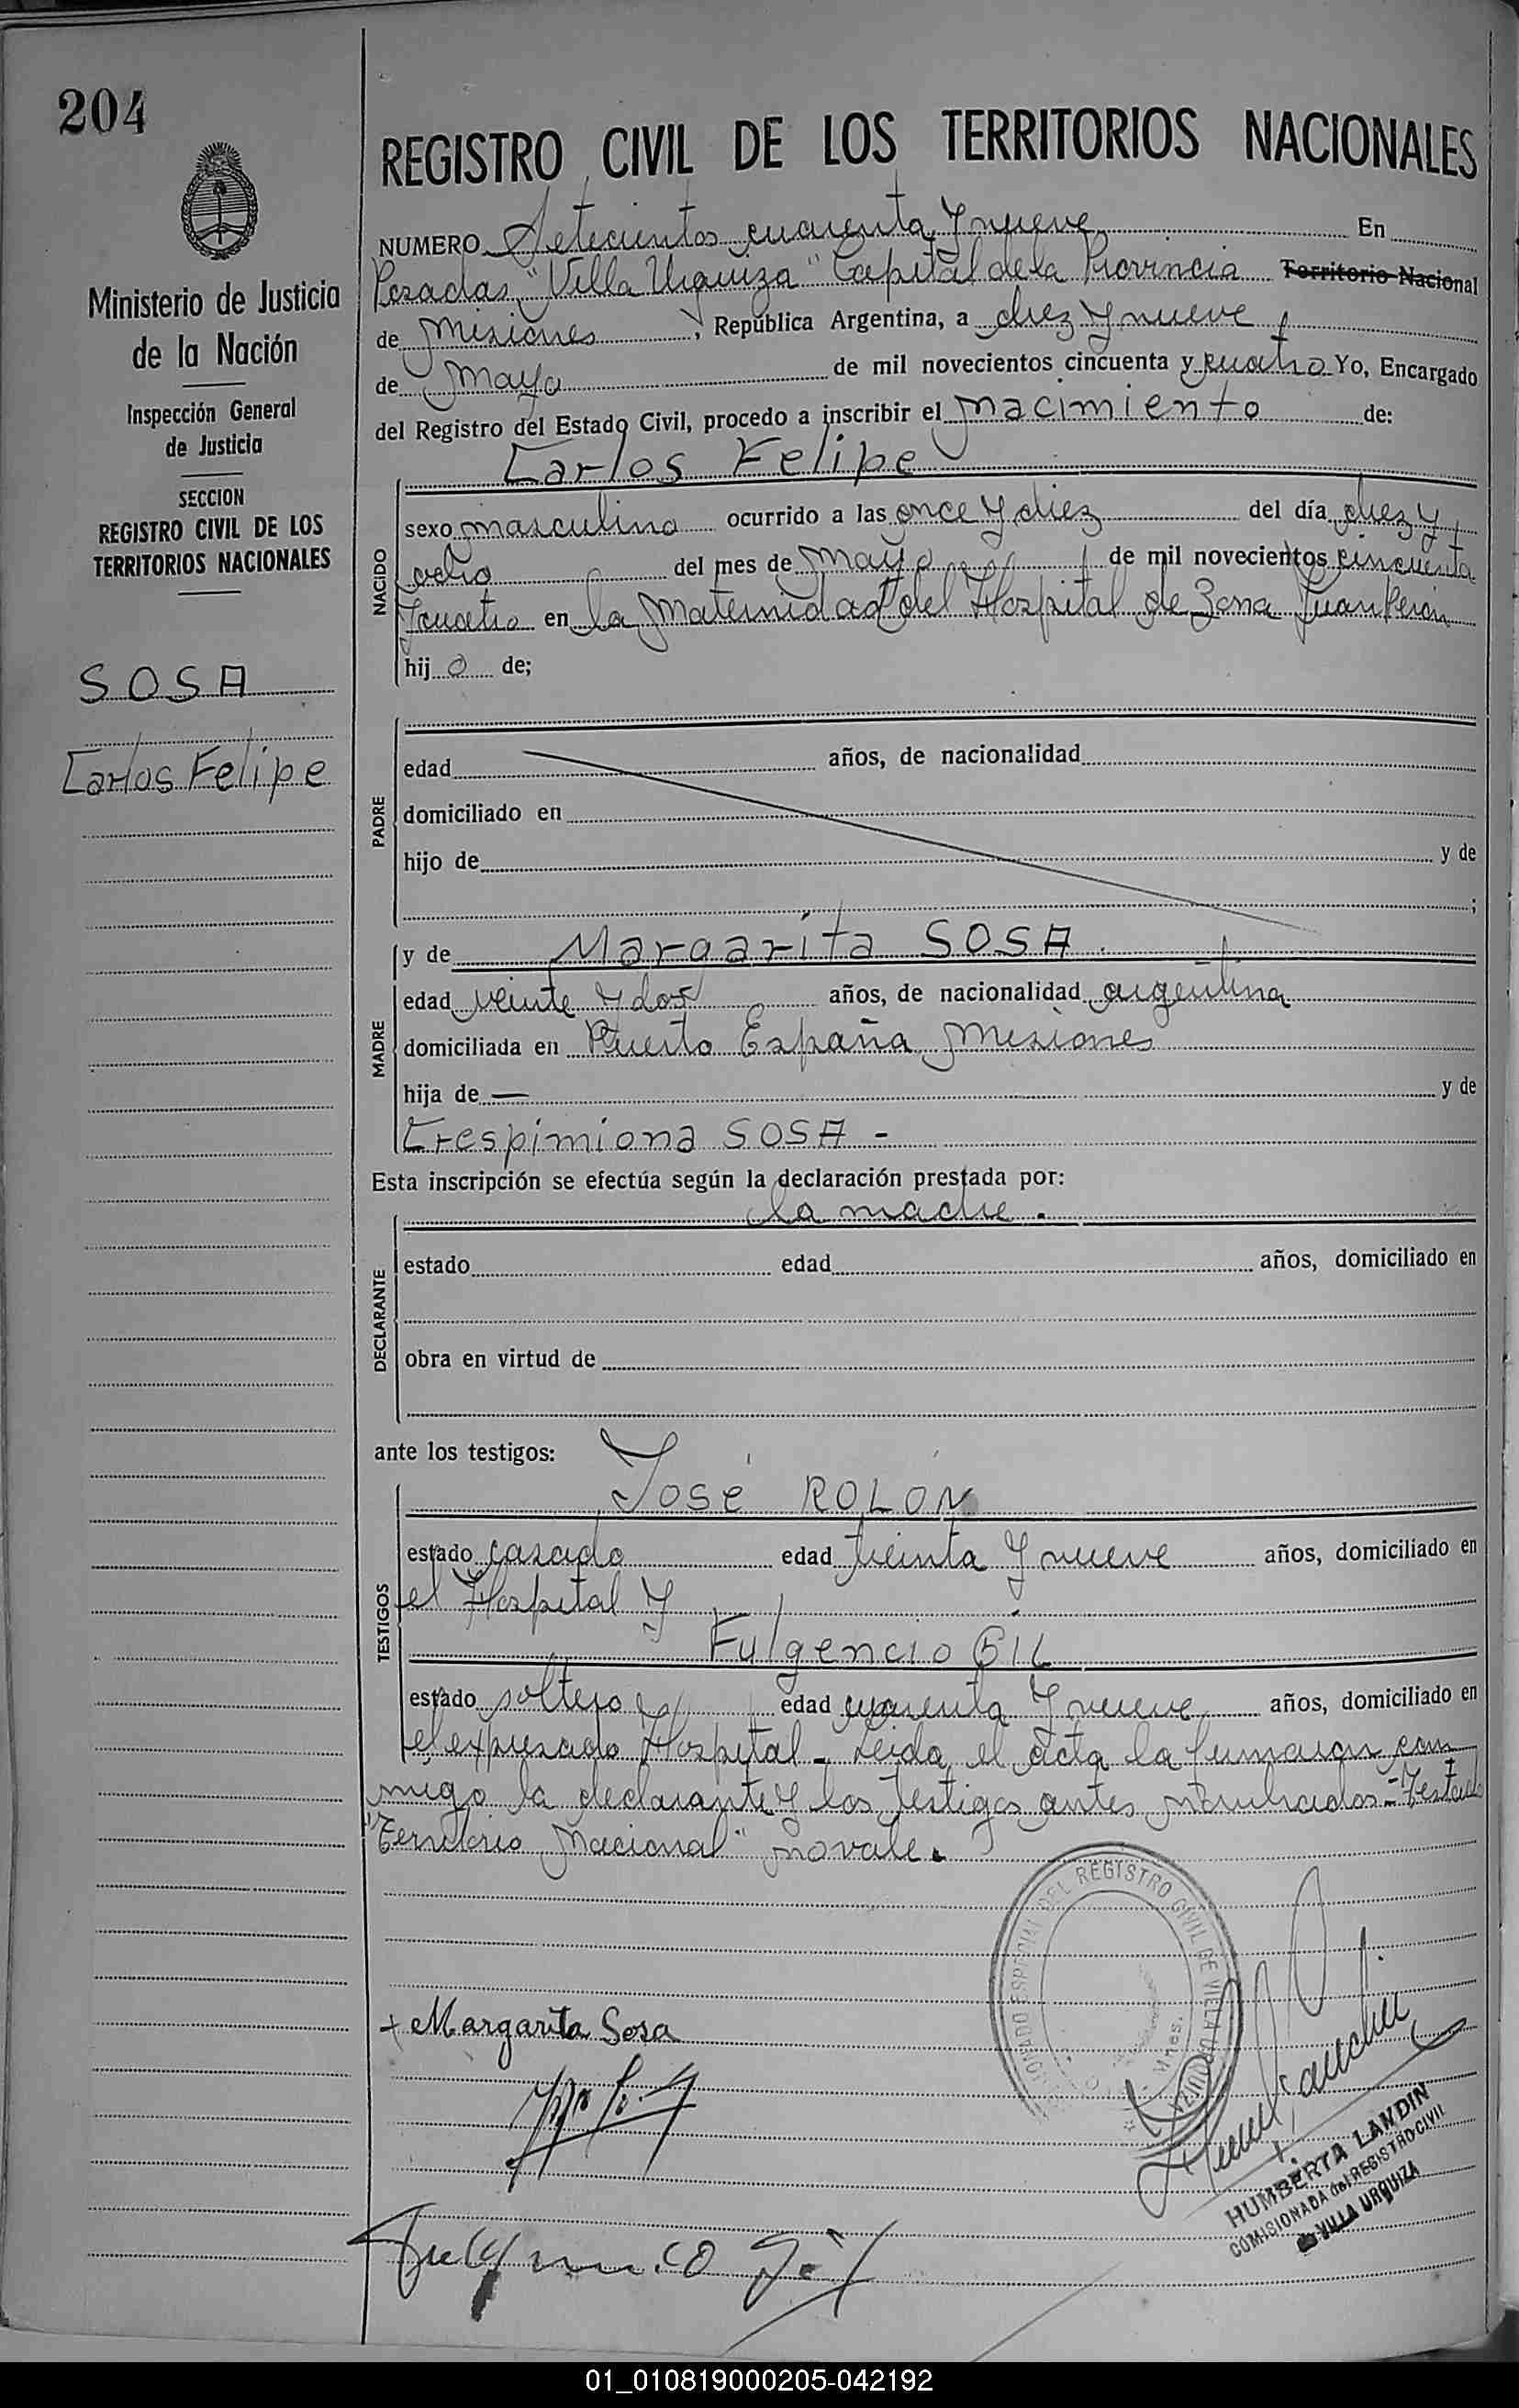 204
Ministerio de Justicia
de la Nación
Inspección General
de Justicia
SECCION
REGISTRO CIVIL DE LOS
TERRITORIOS NACIONALES
SOSA
Carlos Felipe
REGISTRO CIVIL DE LOS TERRITORIOS NACIONALES
NUMERO Setecientos cuarenta y nueve En
Posadas, "Villa Urquiza" Capital de la Provincia Territorio Nacional
de Misiones, República Argentina, a diez y nueve
de Mayo de mil novecientos cincuenta y cuatro Yo, Encargado
del Registro del Estado Civil, procedo a inscribir el nacimiento de:
Carlos Felipe
NACIDO
sexo masculino ocurrido a las once y diez del día diez y
ocho del mes de mayo de mil novecientos cincuenta
y cuatro en la Maternidad del Hospital de Zona Juan Perón
hijo de;
PADRE
edad años, de nacionalidad
domiciliado en
hijo de y de
;
y de Margarita SOSA.
MADRE
edad veinte y dos años, de nacionalidad argentina
domiciliada en Puerto España, Misiones
hija de — y de
Crespimiona SOSA -
Esta inscripción se efectúa según la declaración prestada por:
la madre.
DECLARANTE
estado edad años, domiciliado en
obra en virtud de
ante los testigos:
José ROLON
TESTIGOS
estado casado edad treinta y nueve años, domiciliado en
el Hospital y
Fulgencio GIL
estado soltero edad cuarenta y nueve años, domiciliado en
el expresado Hospital - Leida el acta la firmaron con
migo la declarante y los testigos antes nombrados - Testado
"Territorio Nacional" no vale.
+ Margarita Sosa
Fulgencio Gil
DEL REGISTRO CIVIL DE VILLA URQUIZA
Mnes.
HUMBERTA LANDIN
COMISIONADA del REGISTRO CIVIL
de VILLA URQUIZA
01_010819000205-042192